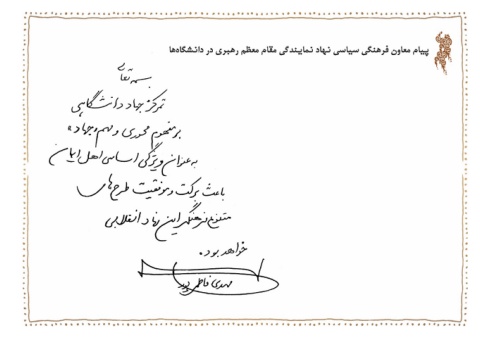 پیام معاون فرهنگی سیاسی نهاد نمایندگی مقام معظم رهبری در دانشگاه‌ها
بسمه تعالی
تمرکز جهاد دانشگاهی
بر مفهوم محوری و مهم «جهاد»
به عنوان ویژگی اساسی اهل ایمان
باعث برکت و موفقیت طرح‌های
متنوع فرهنگی این نهاد انقلابی
خواهد بود.
مهدی فاطمی پور